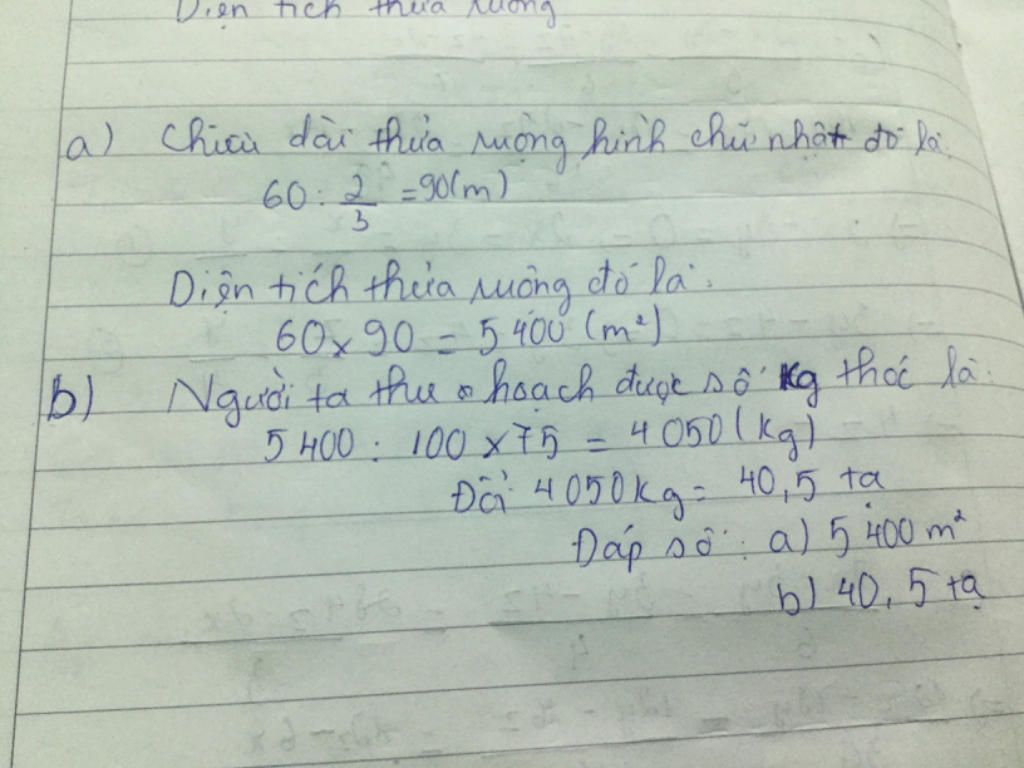 Diện tích thửa ruộng
a) Chiều dài thửa ruộng hình chữ nhật đó là:
60 : 2/3 = 90(m)
Diện tích thửa ruộng đó là:
60 x 90 = 5 400 (m²)
b) Người ta thu hoạch được số kg thóc là:
5 400 : 100 x 75 = 4 050 (kg)
Đổi 4 050 kg = 40,5 tạ
Đáp số : a) 5 400 m²
b) 40,5 tạ